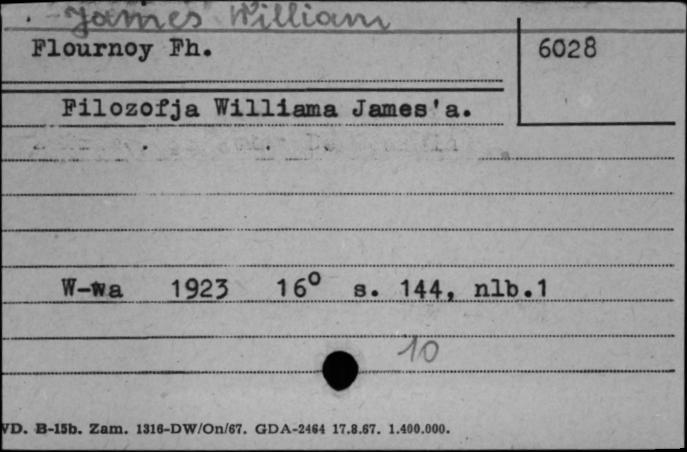 James William
Flournoy Fh.
6028
Filozofja Williama James'a.
W-wa 1923 16° s. 144, nlb.1
10
VD. B-15b. Zam. 1316-DW/On/67. GDA-2464 17.8.67. 1.400.000.